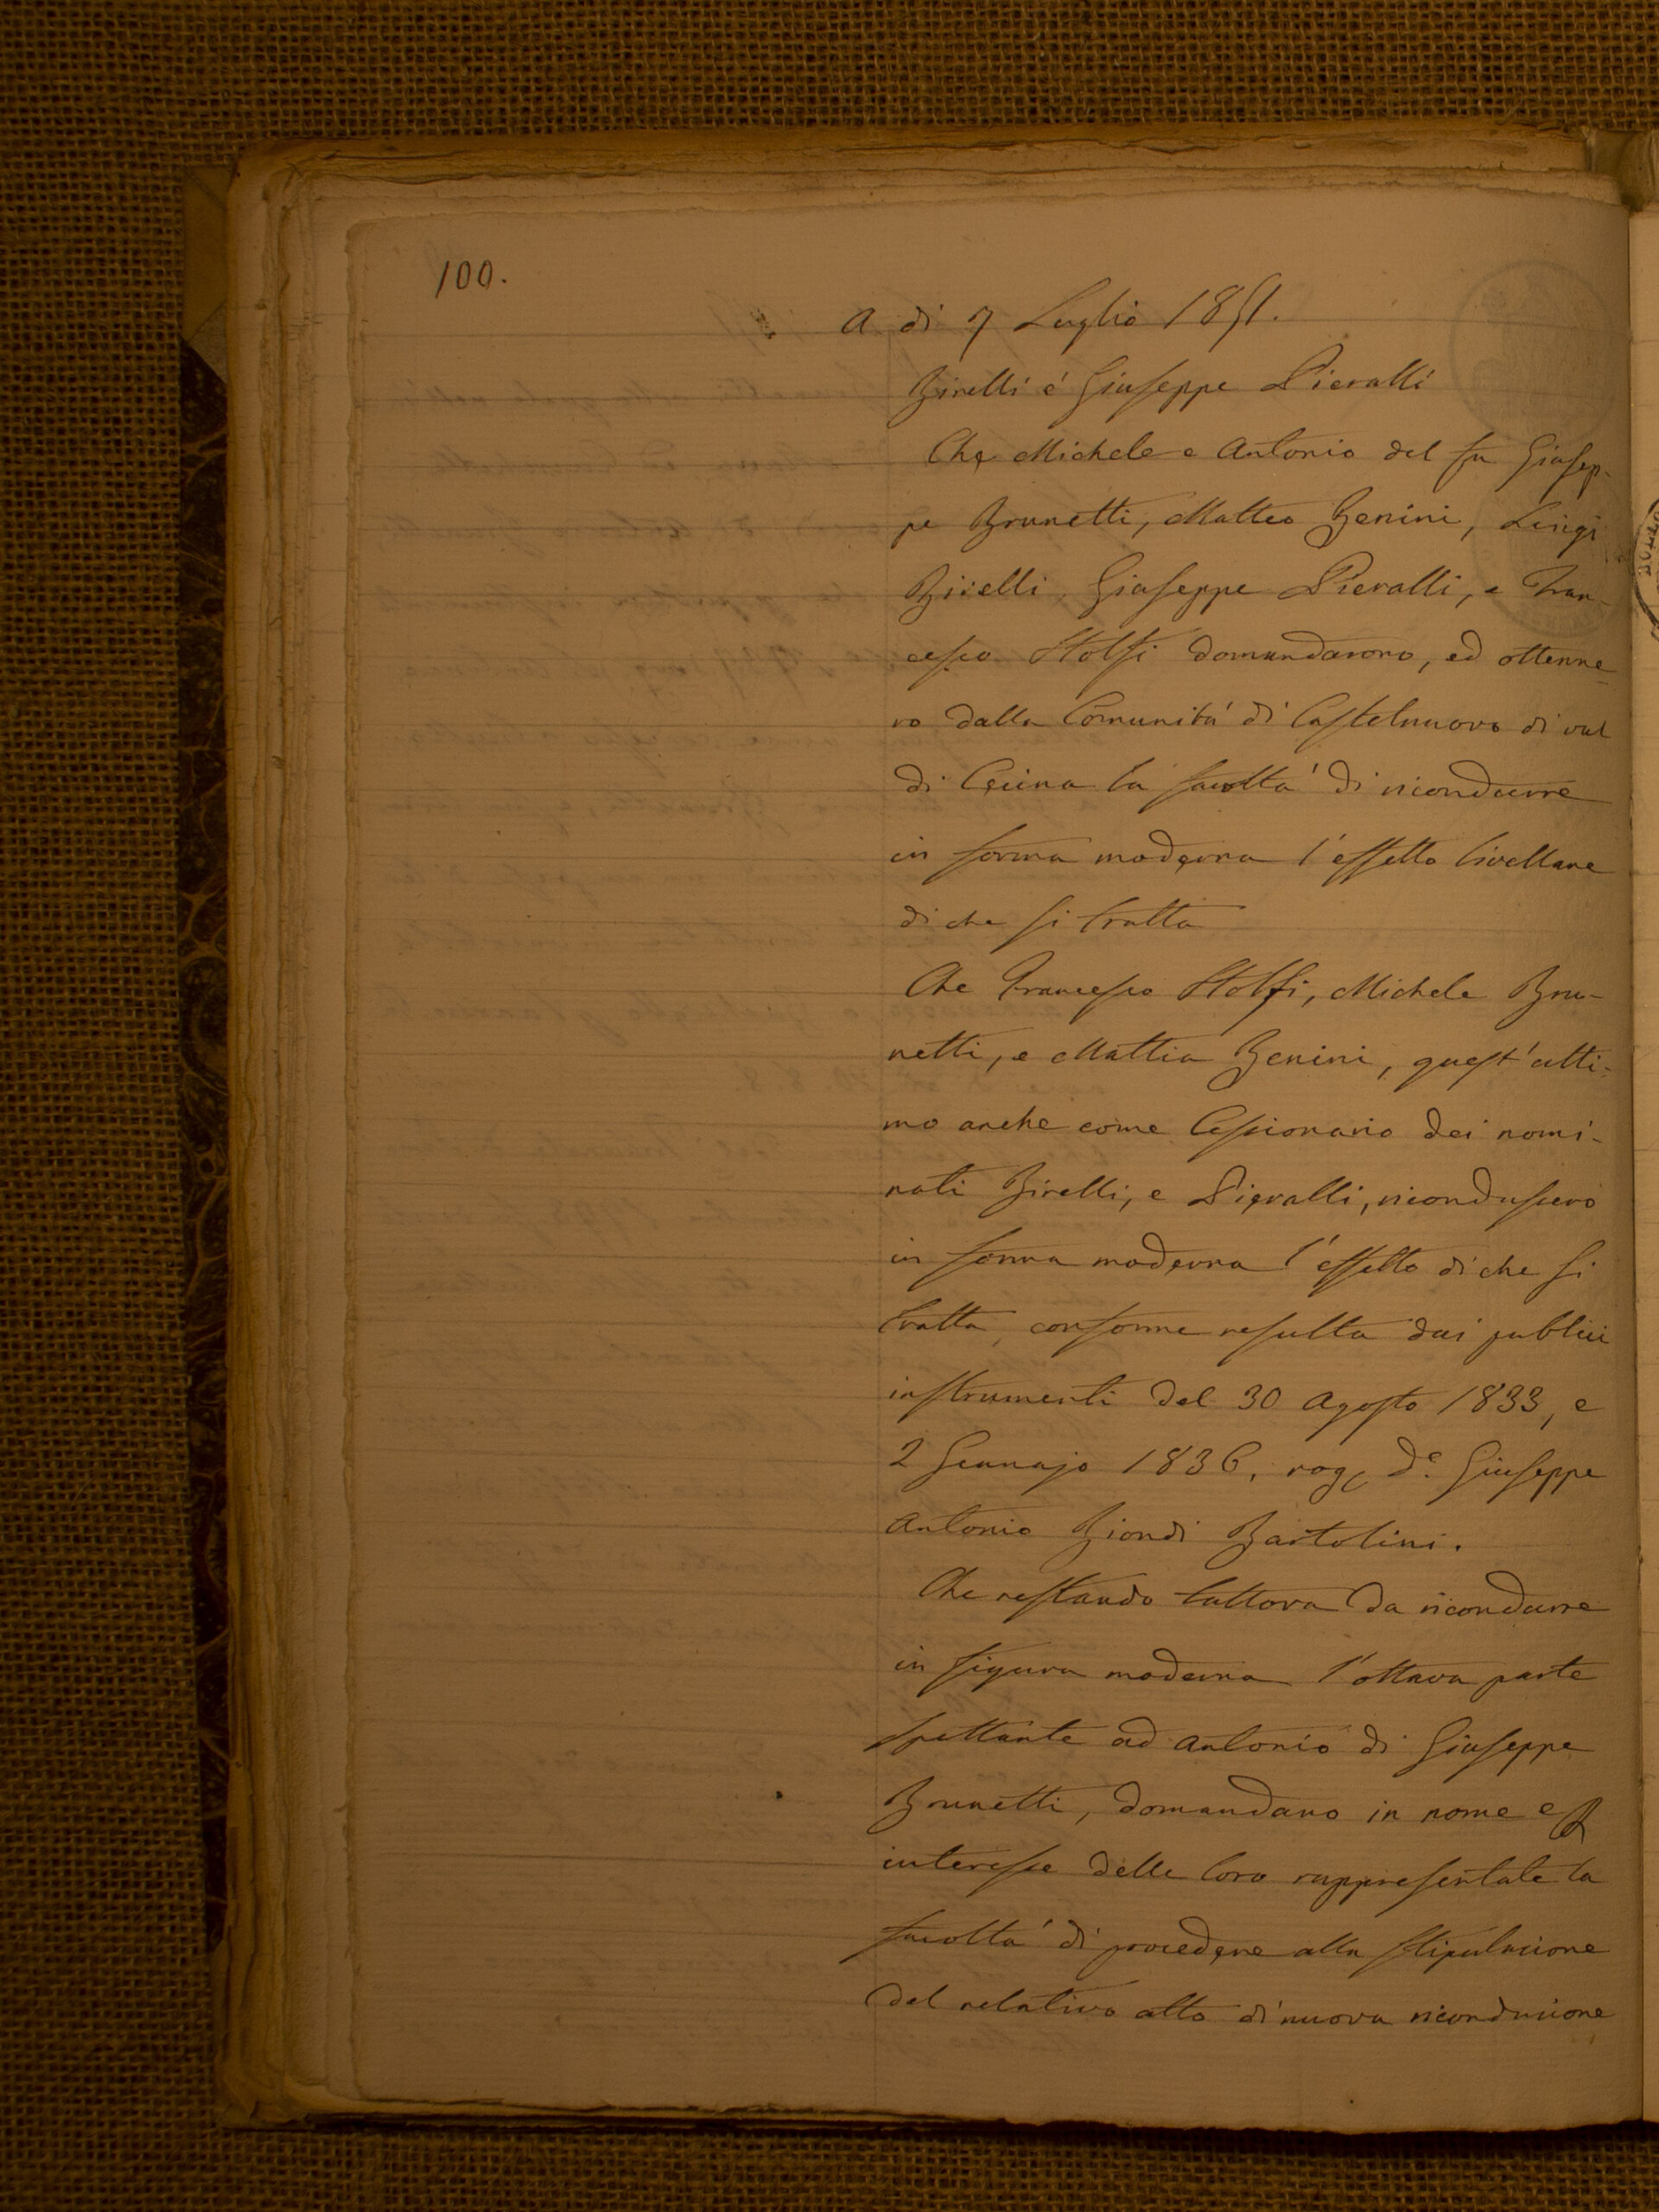 100.
A di 7 Luglio 1851.
Birelli e Giuseppe Pieralli
Che Michele e Antonio del fu Giusep-
pe Brunetti, Matteo Benini, Luigi
Birelli, Giuseppe Pieralli, e Fran-
cesco Stolfi domandarono, ed ottenne-
ro dalla Comunità di Castelnuovo di val
di Cecina la facoltà di ricondurre
in forma moderna l'effetto livellare
di che si tratta
Che Francesco Stolfi, Michele Bru-
netti, e Mattia Benini, quest'ulti-
mo anche come Cessionario dei nomi-
nati Birelli, e Pieralli, ricondussero
in forma moderna l'effetto di che si
tratta, conforme resulta dai publici
instrumenti del 30 Agosto 1833, e
2 Gennajo 1836, rog. Dᵉ. Giuseppe
Antonio Biondi Bartolini.
Che restando tuttora da ricondurre
in figura moderna l'ottava parte
spettante ad Antonio di Giuseppe
Brunetti, domandano in nome e
interesse delle loro rappresentate la
facoltà di procedere alla stipulazione
del relativo atto di nuova riconduzione